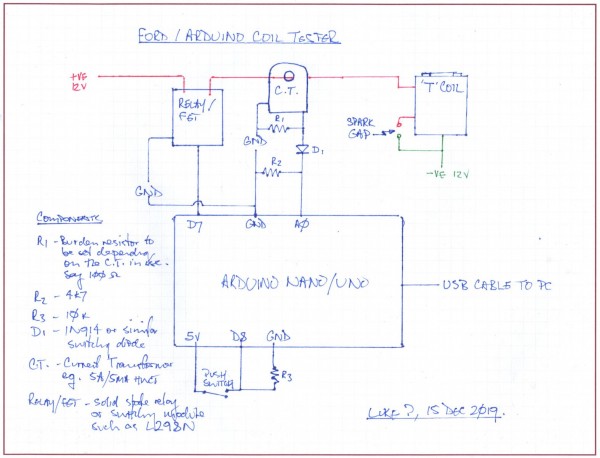 FORD / ARDUINO COIL TESTER
+VE
12V
RELAY/
FET
C.T.
'T' COIL
R1
GND
D1
SPARK
GAP
R2
-VE 12V
GND
D7
GND
A0
COMPONENTS
R1 - Burden resistor to
be set depending
on the C.T. in use.
Say 100Ω
R2 - 4k7
R3 - 10k
D1 - 1N914 or similar
switching diode
C.T. - Current Transformer
eg. 5A/5MA HWCT
RELAY/FET - solid state relay
or switching module
such as L298N
ARDUINO NANO/UNO
USB CABLE TO PC
5V
D8
GND
PUSH
SWITCH
R3
15 DEC 2019.